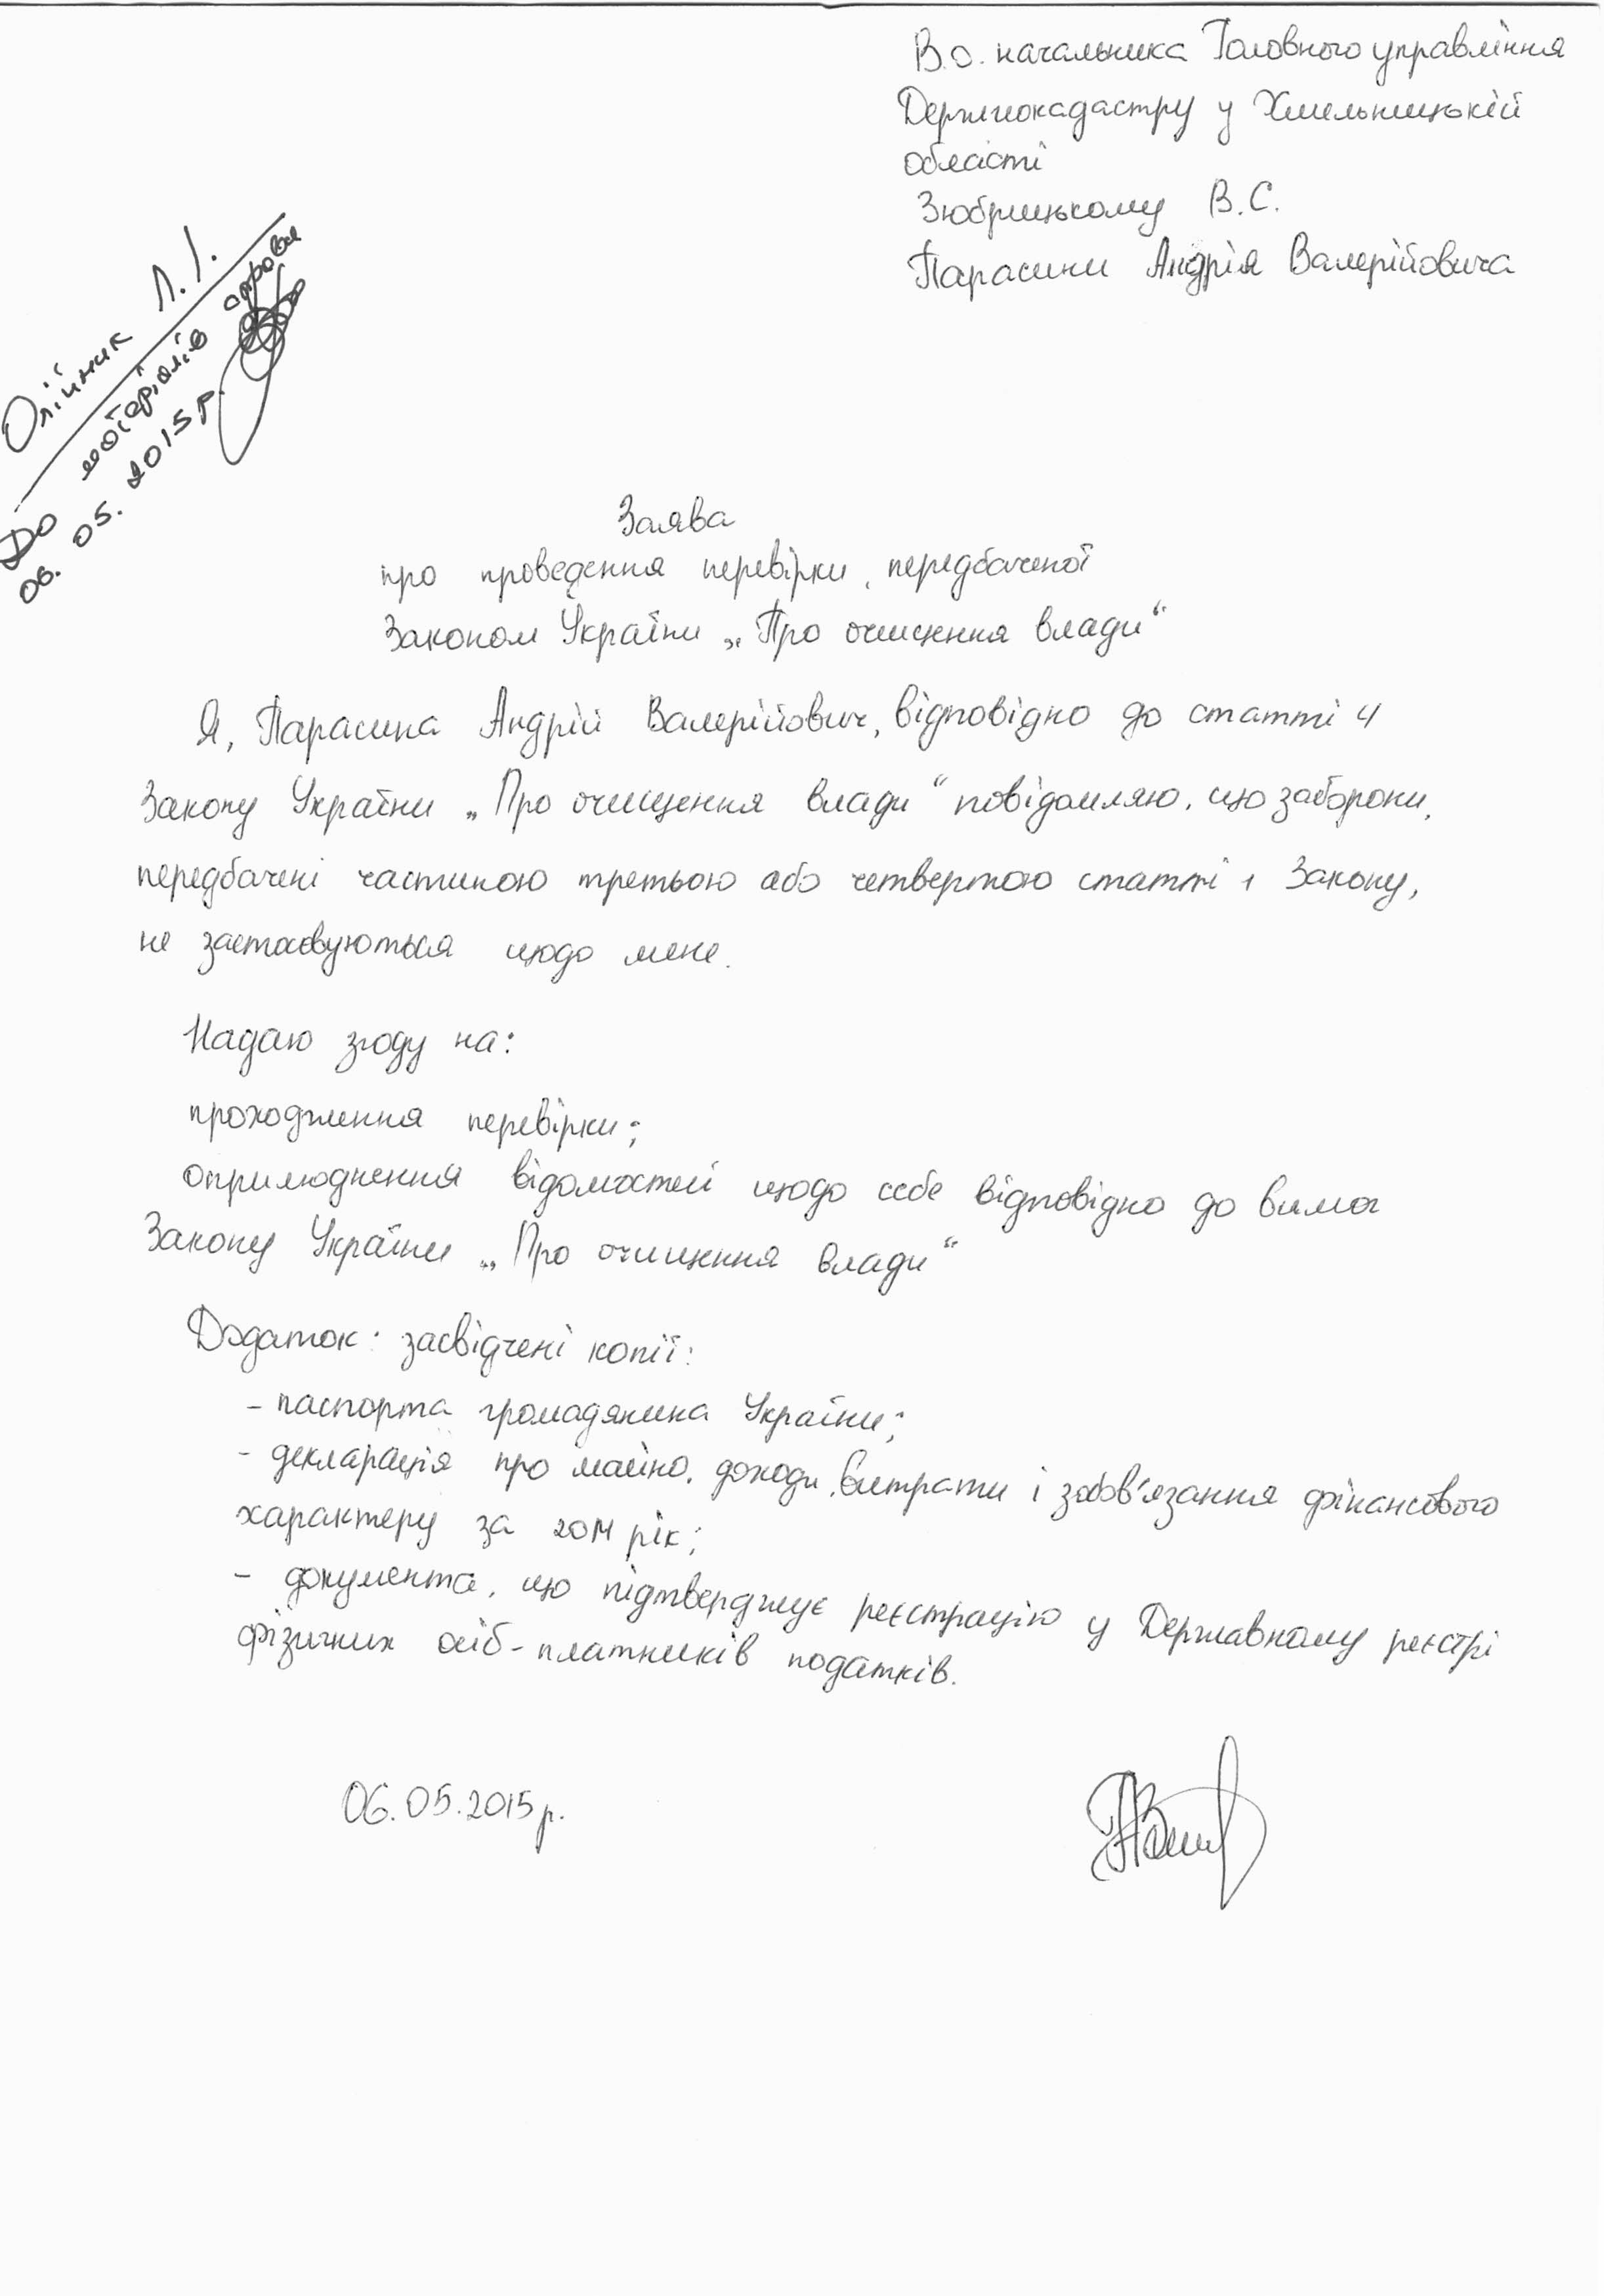 В.о. начальника Головного управління
Держгеокадастру у Хмельницькій
області
Зюбрицькому В.С.
Парасини Андрія Валерійовича
Олійник Л.І.
До матеріалів
06.05.2015р.
Заява
про проведення перевірки, передбаченої
Законом України „Про очищення влади“
Я, Парасина Андрій Валерійович, відповідно до статті 4
Закону України „Про очищення влади“ повідомляю, що заборони,
передбачені частиною третьою або четвертою статті 1 Закону,
не застосовуються щодо мене.
Надаю згоду на:
проходження перевірки;
оприлюднення відомостей щодо себе відповідно до вимог
Закону України „Про очищення влади“
Додаток: засвідчені копії:
- паспорта громадянина України;
- декларація про майно, доходи, витрати і зобов'язання фінансового
характеру за 2014 рік;
- документа, що підтверджує реєстрацію у Державному реєстрі
фізичних осіб-платників податків.
06.05.2015р.